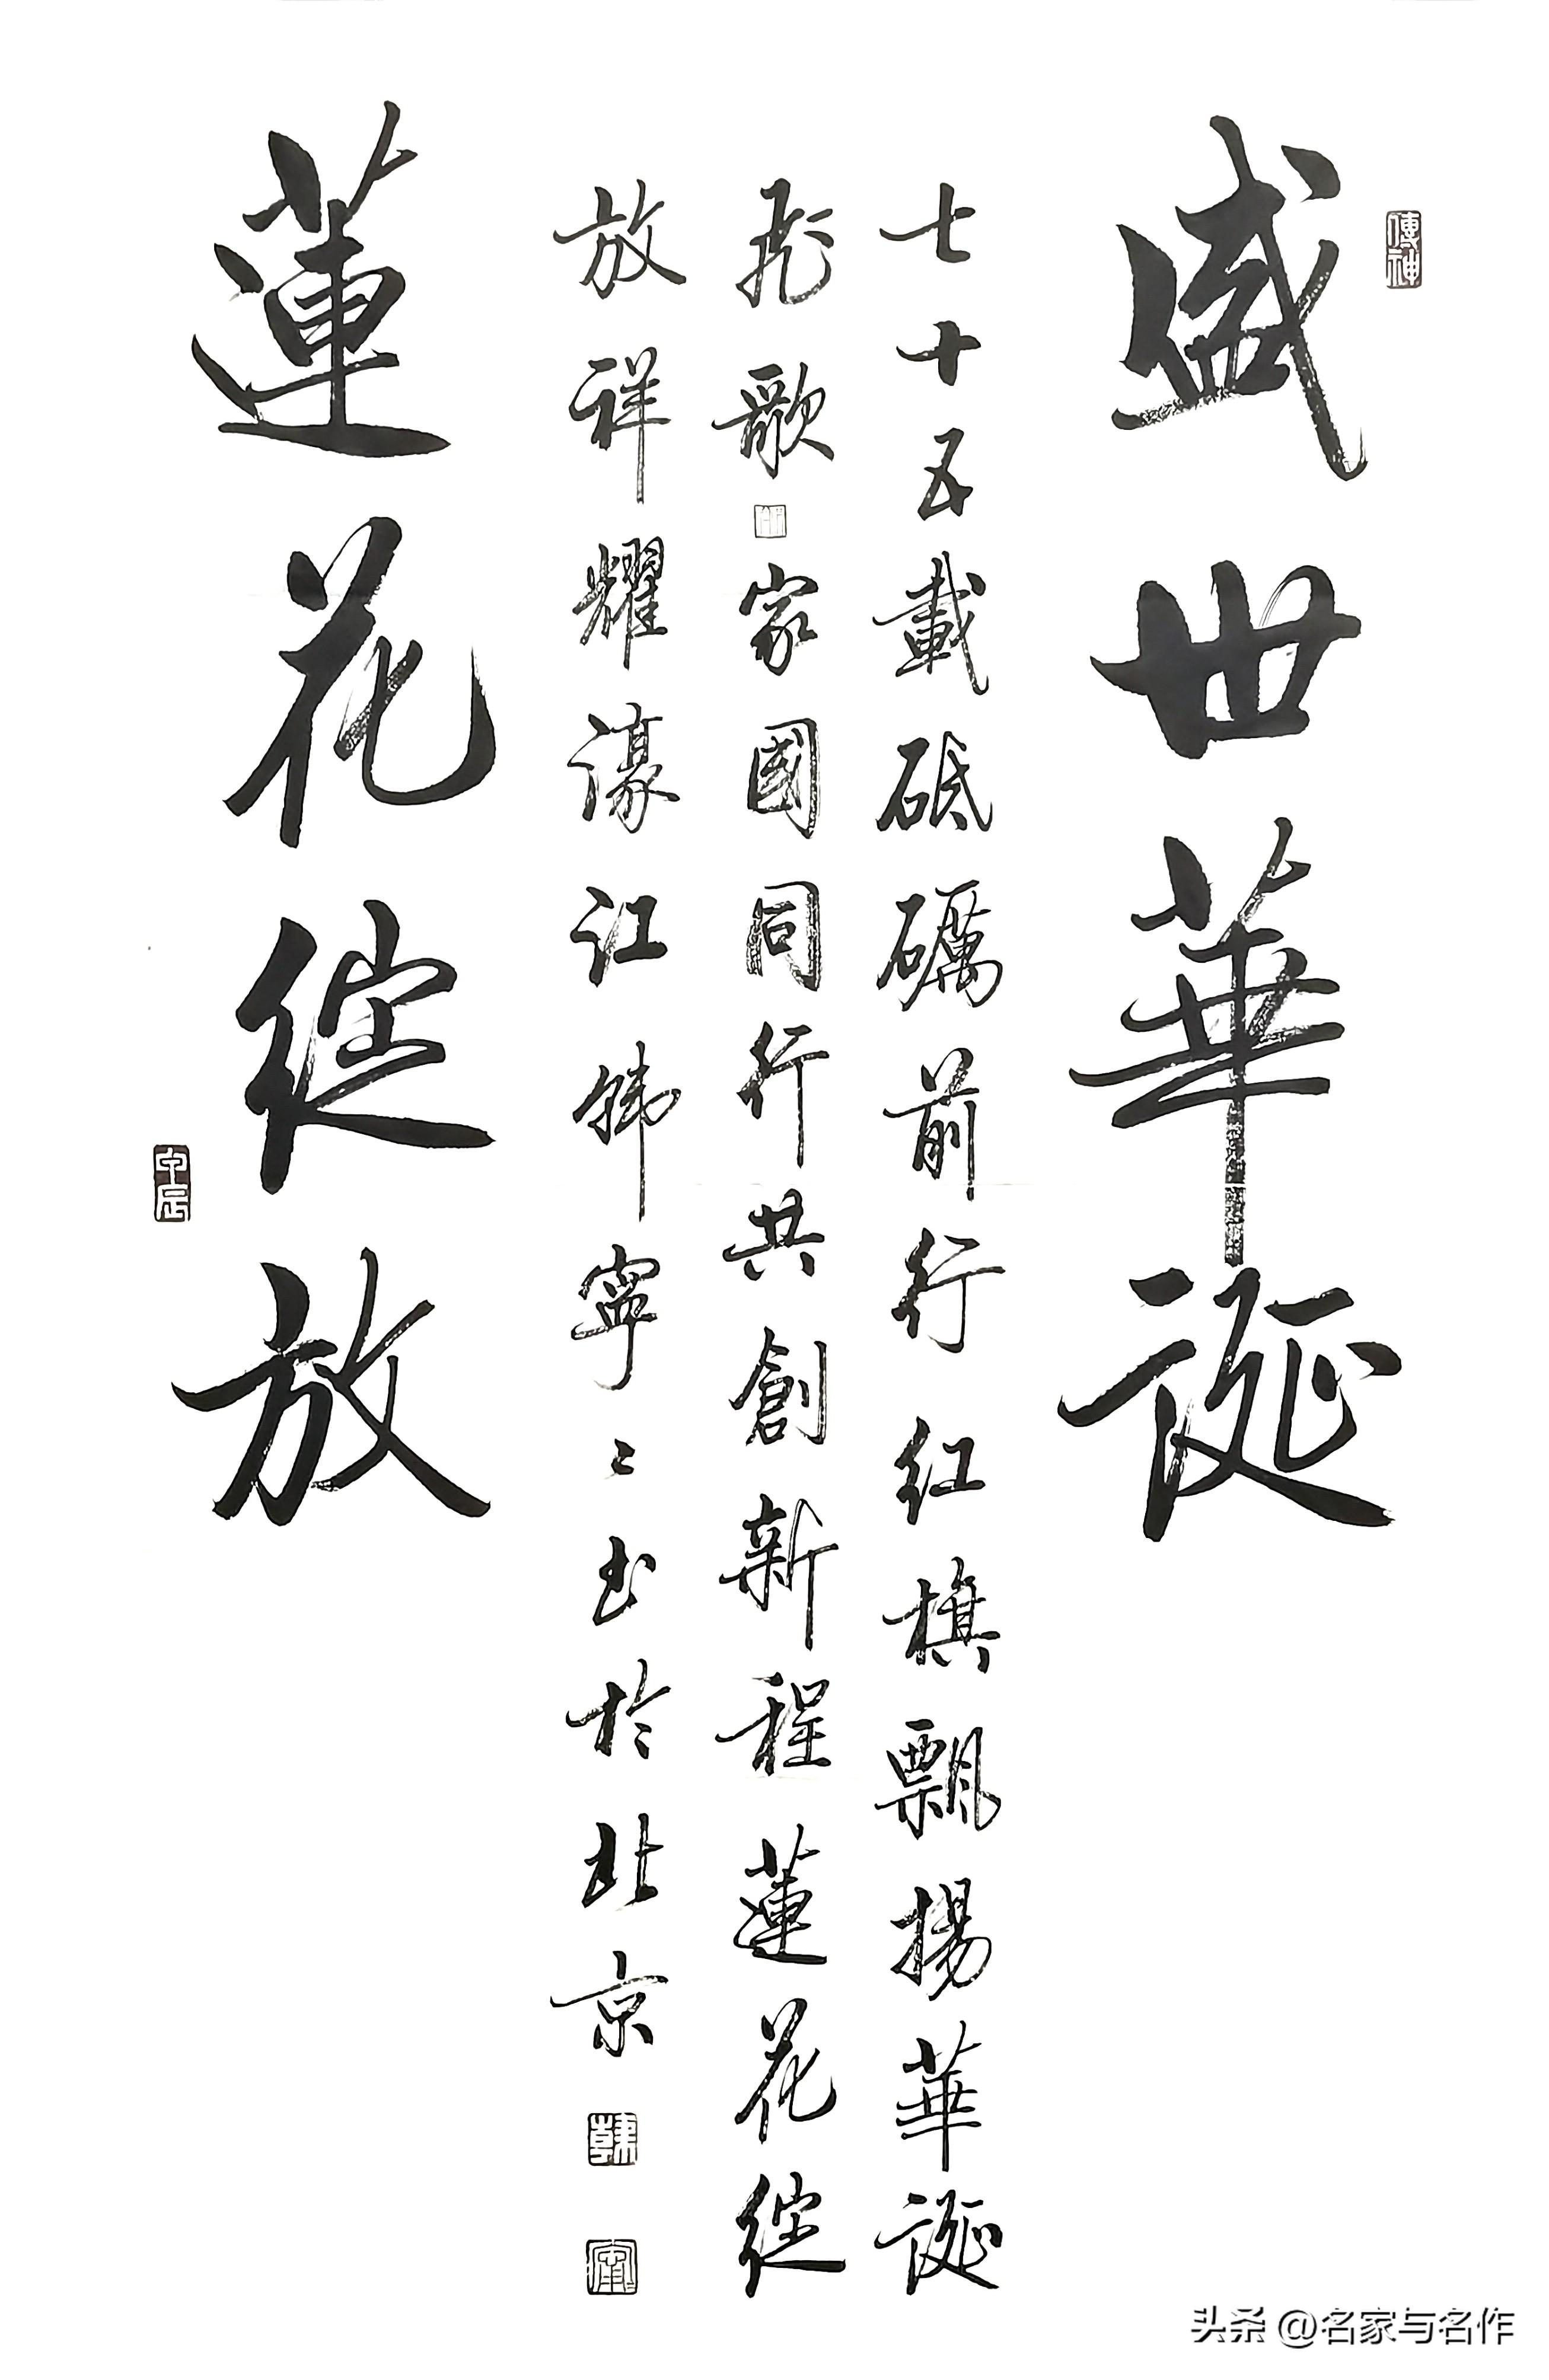 傳神
盛世華誕
七十五載砥礪前行紅旗飄揚華誕
飛歌家國同行共創新程蓮花綻
放祥耀濠江韩寧〻书於北京
蓮花綻放
头条 @名家与名作